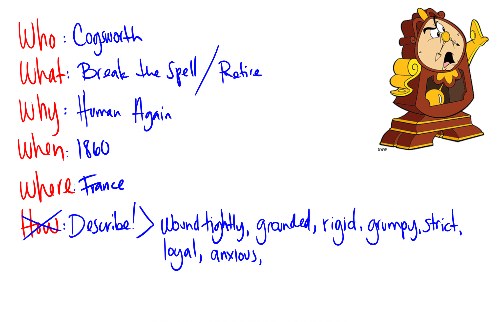 Who: Cogsworth
What: Break the Spell / Retire
Why: Human Again
When: 1860
Where: France
How: Describe! > Wound tightly, grounded, rigid, grumpy, strict,
loyal, anxious,